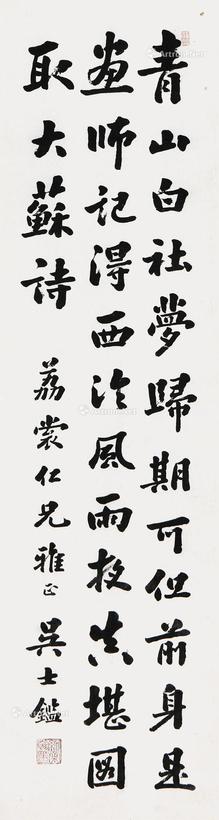 青山白社夢歸期可但前身是
畫師記得西泠風雨夜真堪圖
取大蘇詩
荔裳仁兄雅正 吳士鑑